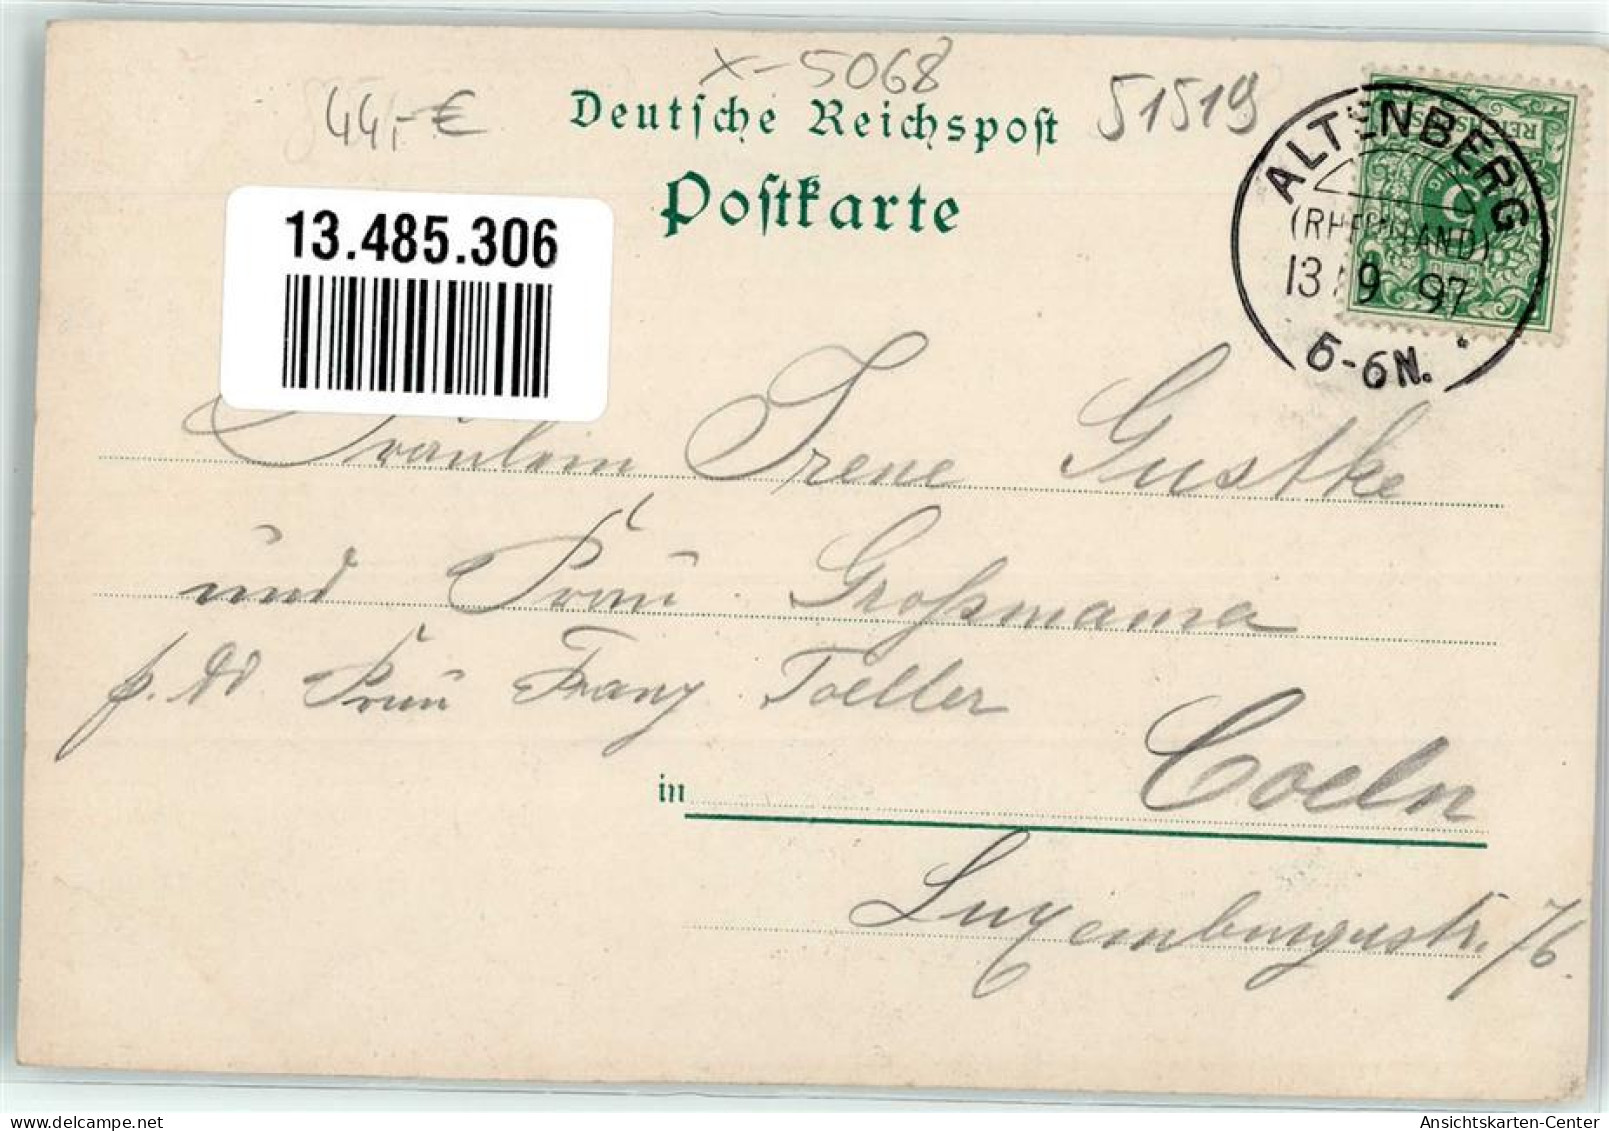 x-5068
44,-€
Deutsche Reichspost
51519
Postkarte
13.485.306
REICHSPOST
ALTENBERG
(RHEINLAND)
13 9 97
5-6N.
Fräulein Irene Gustke
und Frau Großmama
p. Ad Frau Franz Toeller
in Coeln
Luxemburgerstr. 76.
Ansichtskarten-Center